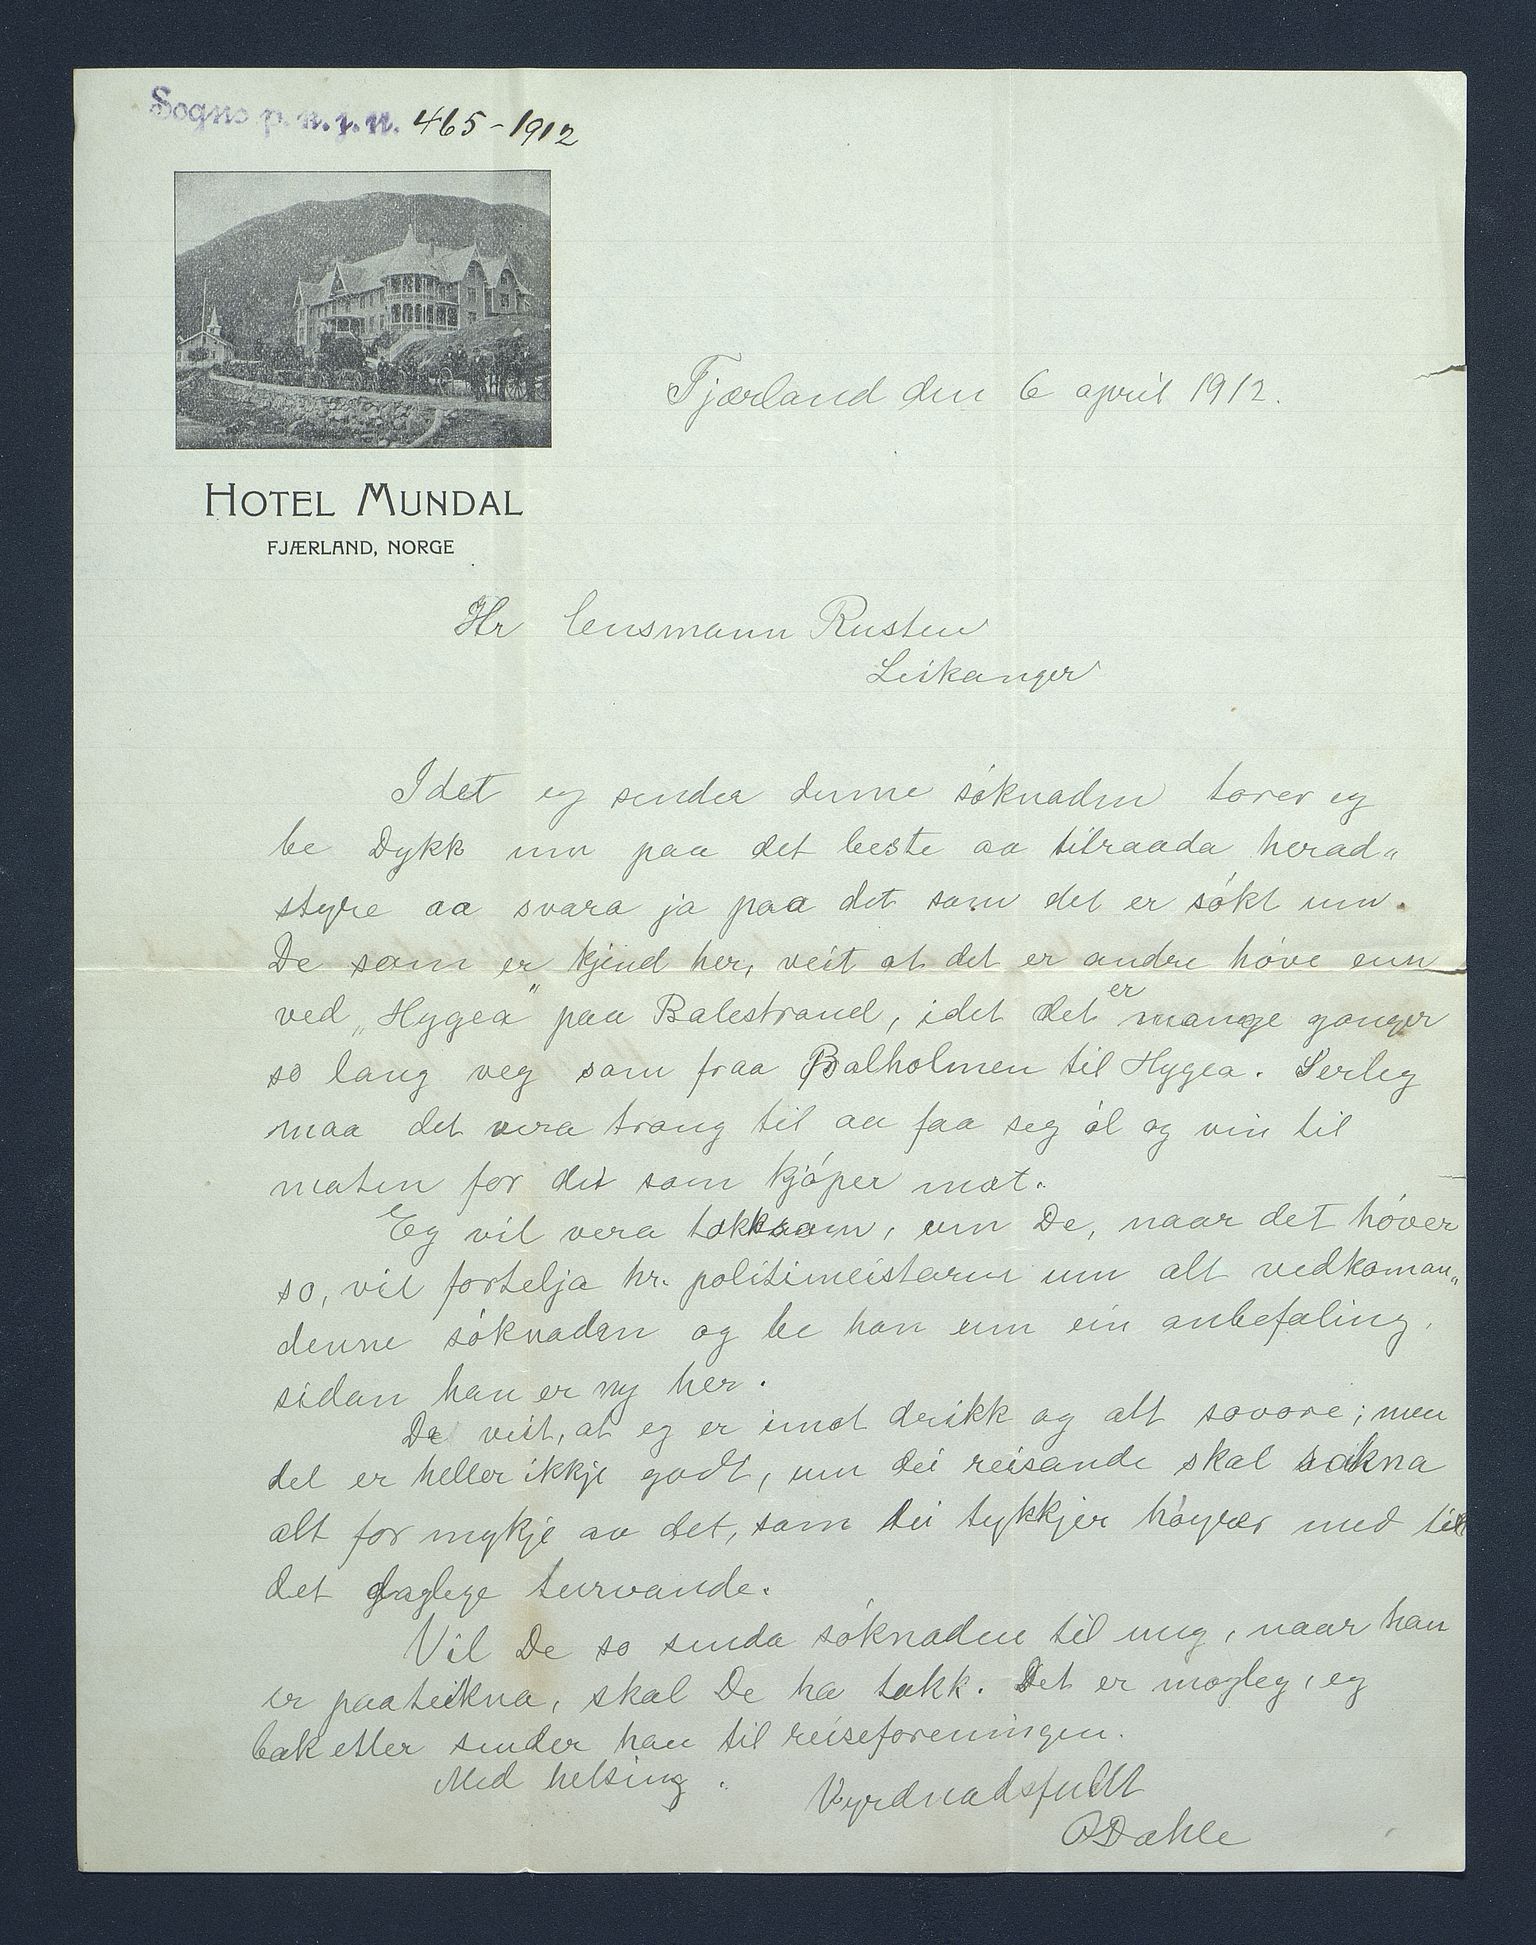 Sogns p. m. j. n. 465-1912
HOTEL MUNDAL
FJÆRLAND, NORGE
Fjærland den 6 april 1912.
Hr lensmann Rusten
Leikanger
Idet eg sender denne söknaden torer eg
be Dykk um paa det beste aa tilraada herad„
styre aa svara ja paa det som det er sökt um.
De som er kjend her, veit at det er andre höve enn
ved „Hygea" paa Balestrand, idet det er mange gonger
so lang veg som fraa Balholmen til Hygea. Serleg
maa det vera trong til aa faa seg öl og vin til
maten for dei som kjöper mat.
Eg vil vera takksam, um De, naar det höver
so, vil fortelja hr. politimeisteren um alt vedkoman„
denne söknaden og be han um ein anbefaling,
sidan han er ny her.
De veit, at eg er imot drikk og alt sovore; men
det er heller ikkje godt, um dei reisande skal sakna
alt for mykje av det, som dei tykkjer höyrer med til
det daglege turvande.
Vil De so senda söknaden til meg, naar han
er paateikna, skal De ha takk. Det er mogleg, eg
bak etter sender han til reiseforeningen.
Med helsing. Vyrdnadsfullt
Dahle